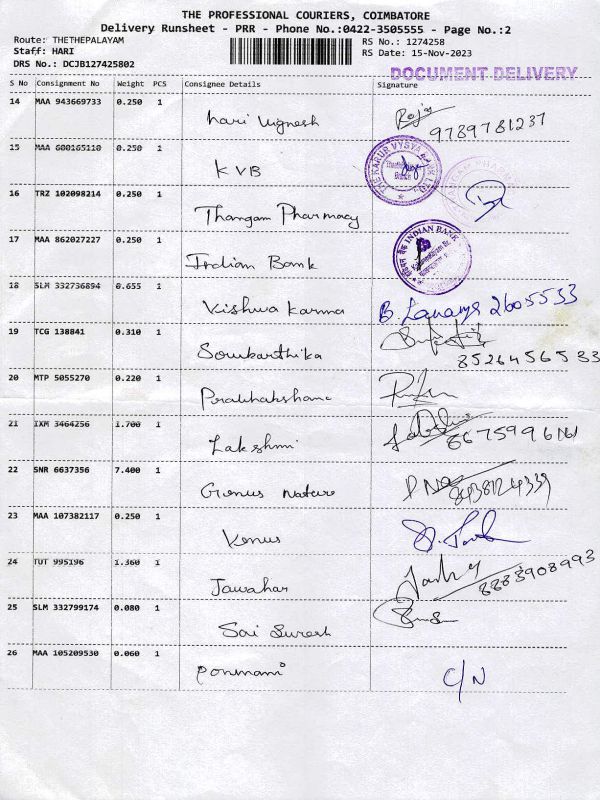 THE PROFESSIONAL COURIERS, COIMBATORE
Delivery Runsheet - PRR - Phone No.:0422-3505555 - Page No.:2
Route: THETHEPALAYAM
Staff: HARI
DRS No.: DCJB127425802
RS No.: 1274258
RS Date: 15-Nov-2023
DOCUMENT DELIVERY
S No Consignment No Weight PCS Consignee Details Signature
14 MAA 943669733 0.250 1 hari vignesh 9789781237
15 MAA 600165110 0.250 1 KVB
THE KARUR VYSYA BANK LTD
16 TRZ 102098214 0.250 1 Thangam Pharmacy
17 MAA 862027227 0.250 1 Indian Bank
INDIAN BANK
18 SLM 332736894 0.655 1 Vishwa Karma B. Lavanya 2605533
19 TCG 138841 0.310 1 Sowkarthika 8526456533
20 MTP 5055270 0.220 1 Prabhakshana
21 IXM 3464256 1.700 1 Lakshmi 8675996161
22 SNR 6637356 7.400 1 Genus Nature 8438124339
23 MAA 107382117 0.250 1 Venus
24 TUT 995196 1.360 1 Jawahar 8883908993
25 SLM 332799174 0.080 1 Sai Suresh
26 MAA 105209530 0.060 1 Ponmani C/N